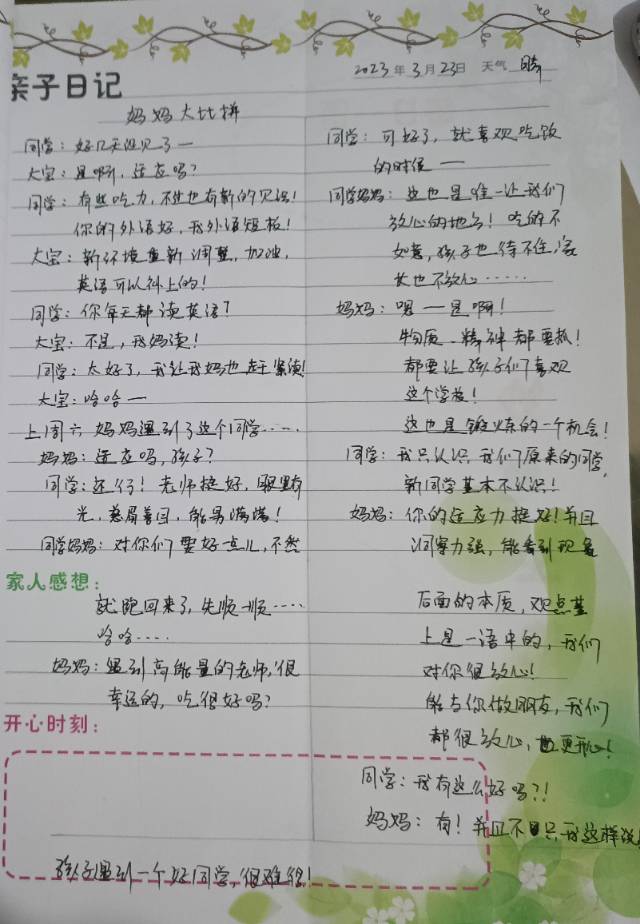 亲子日记
2023年3月23日 天气 晴
妈妈大比拼
同学：好几天没见了—
大宝：是啊，适应吗？
同学：有些吃力，不过也有新的见识！
你的外语好，我外语短板！
大宝：新环境重新调整，加油，
英语可以补上的！
同学：你每天都读英语？
大宝：不是，我妈读！
同学：太好了，我让我妈也赶紧读！
大宝：哈哈—
上周六妈妈遇到了这个同学……
妈妈：适应吗，孩子？
同学：还行！老师挺好，眼里有
光，慈眉善目，能量满满！
同学妈妈：对你们要好点儿，不然
家人感想：
就跑回来了，先顺一顺……
哈哈……
妈妈：遇到高能量的老师，很
幸运的，吃得好吗？
开心时刻：
同学：可好了，就喜欢吃饭
的时候—
同学妈妈：这也是唯一让我们
放心的地方！吃的不
如意，孩子也待不住，家
长也不放心……
妈妈：嗯—是啊！
物质、精神都要抓！
都要让孩子们喜欢
这个学校！
这也是锻炼的一个机会！
同学：我只认识我们原来的同学，
新同学基本不认识！
妈妈：你的适应力挺好！并且
洞察力强，能看到现象
后面的本质，观点基
上是一语中的，我们
对你很放心！
能与你做朋友，我们
都很放心，也更开心！
同学：我有这么好吗？！
妈妈：有！并且不只我这样说！
孩子遇到一个好同学，很难得！